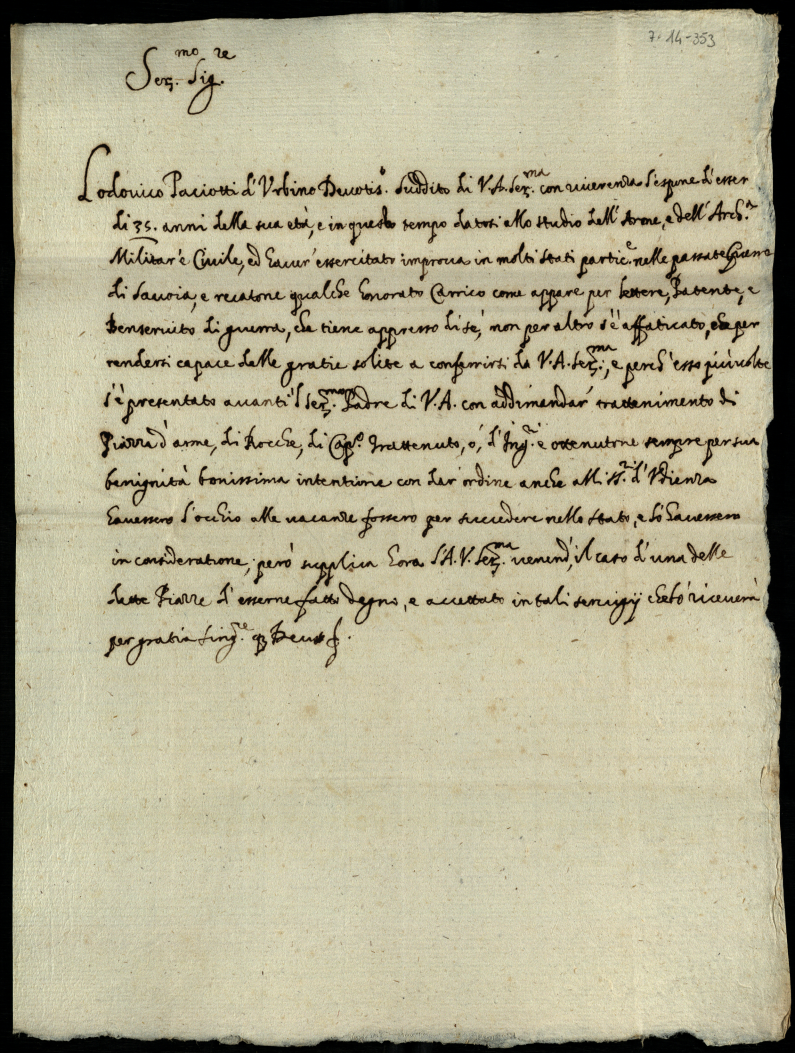 7·14-353
Ser.mo Sig.re
Lodovico Paciotti d'Urbino Devotis.o Suddito di V.A. Ser.ma con riverenza l'espone d'esser
di 35. anni della sua età, e in questo tempo datosi allo studio dell' e dell' Arch.a
Militar' e Civile, ed haver' essercitato improva in molti stati partic.e nelle passate Guerre
di Savoia, e recatone qualche honorato Carrico come appare per lettere, Patente, e
Benservito di guerra, che tiene appresso di sé, non per altro s'è affaticato, che per
rendersi capace delle gratie solite a conferrirsi da V.A. Ser.ma, e perch' esso più volte
s'è presentato avanti 'l Ser.mo Padre di V.A. con addimandar' trattenimento di
Piazza d'arme, di Rocche, di Cap.o Trattenuto, ó, d'Ing.re e ottenutone sempre per sua
benignità bonissima intentione con dar' ordine anche alli SS.ri d'Udienza
havessero l'occhio alle vacanze fossero per succedere nello stato, e lo havessero
in consideratione, però supplica hora l'A.V. Ser.ma venend' il caso d'una delle
dette Piazze d'esserne fatto degno, e accettato in tali servigij che lo riceverà
per gratia sing.re q Deus